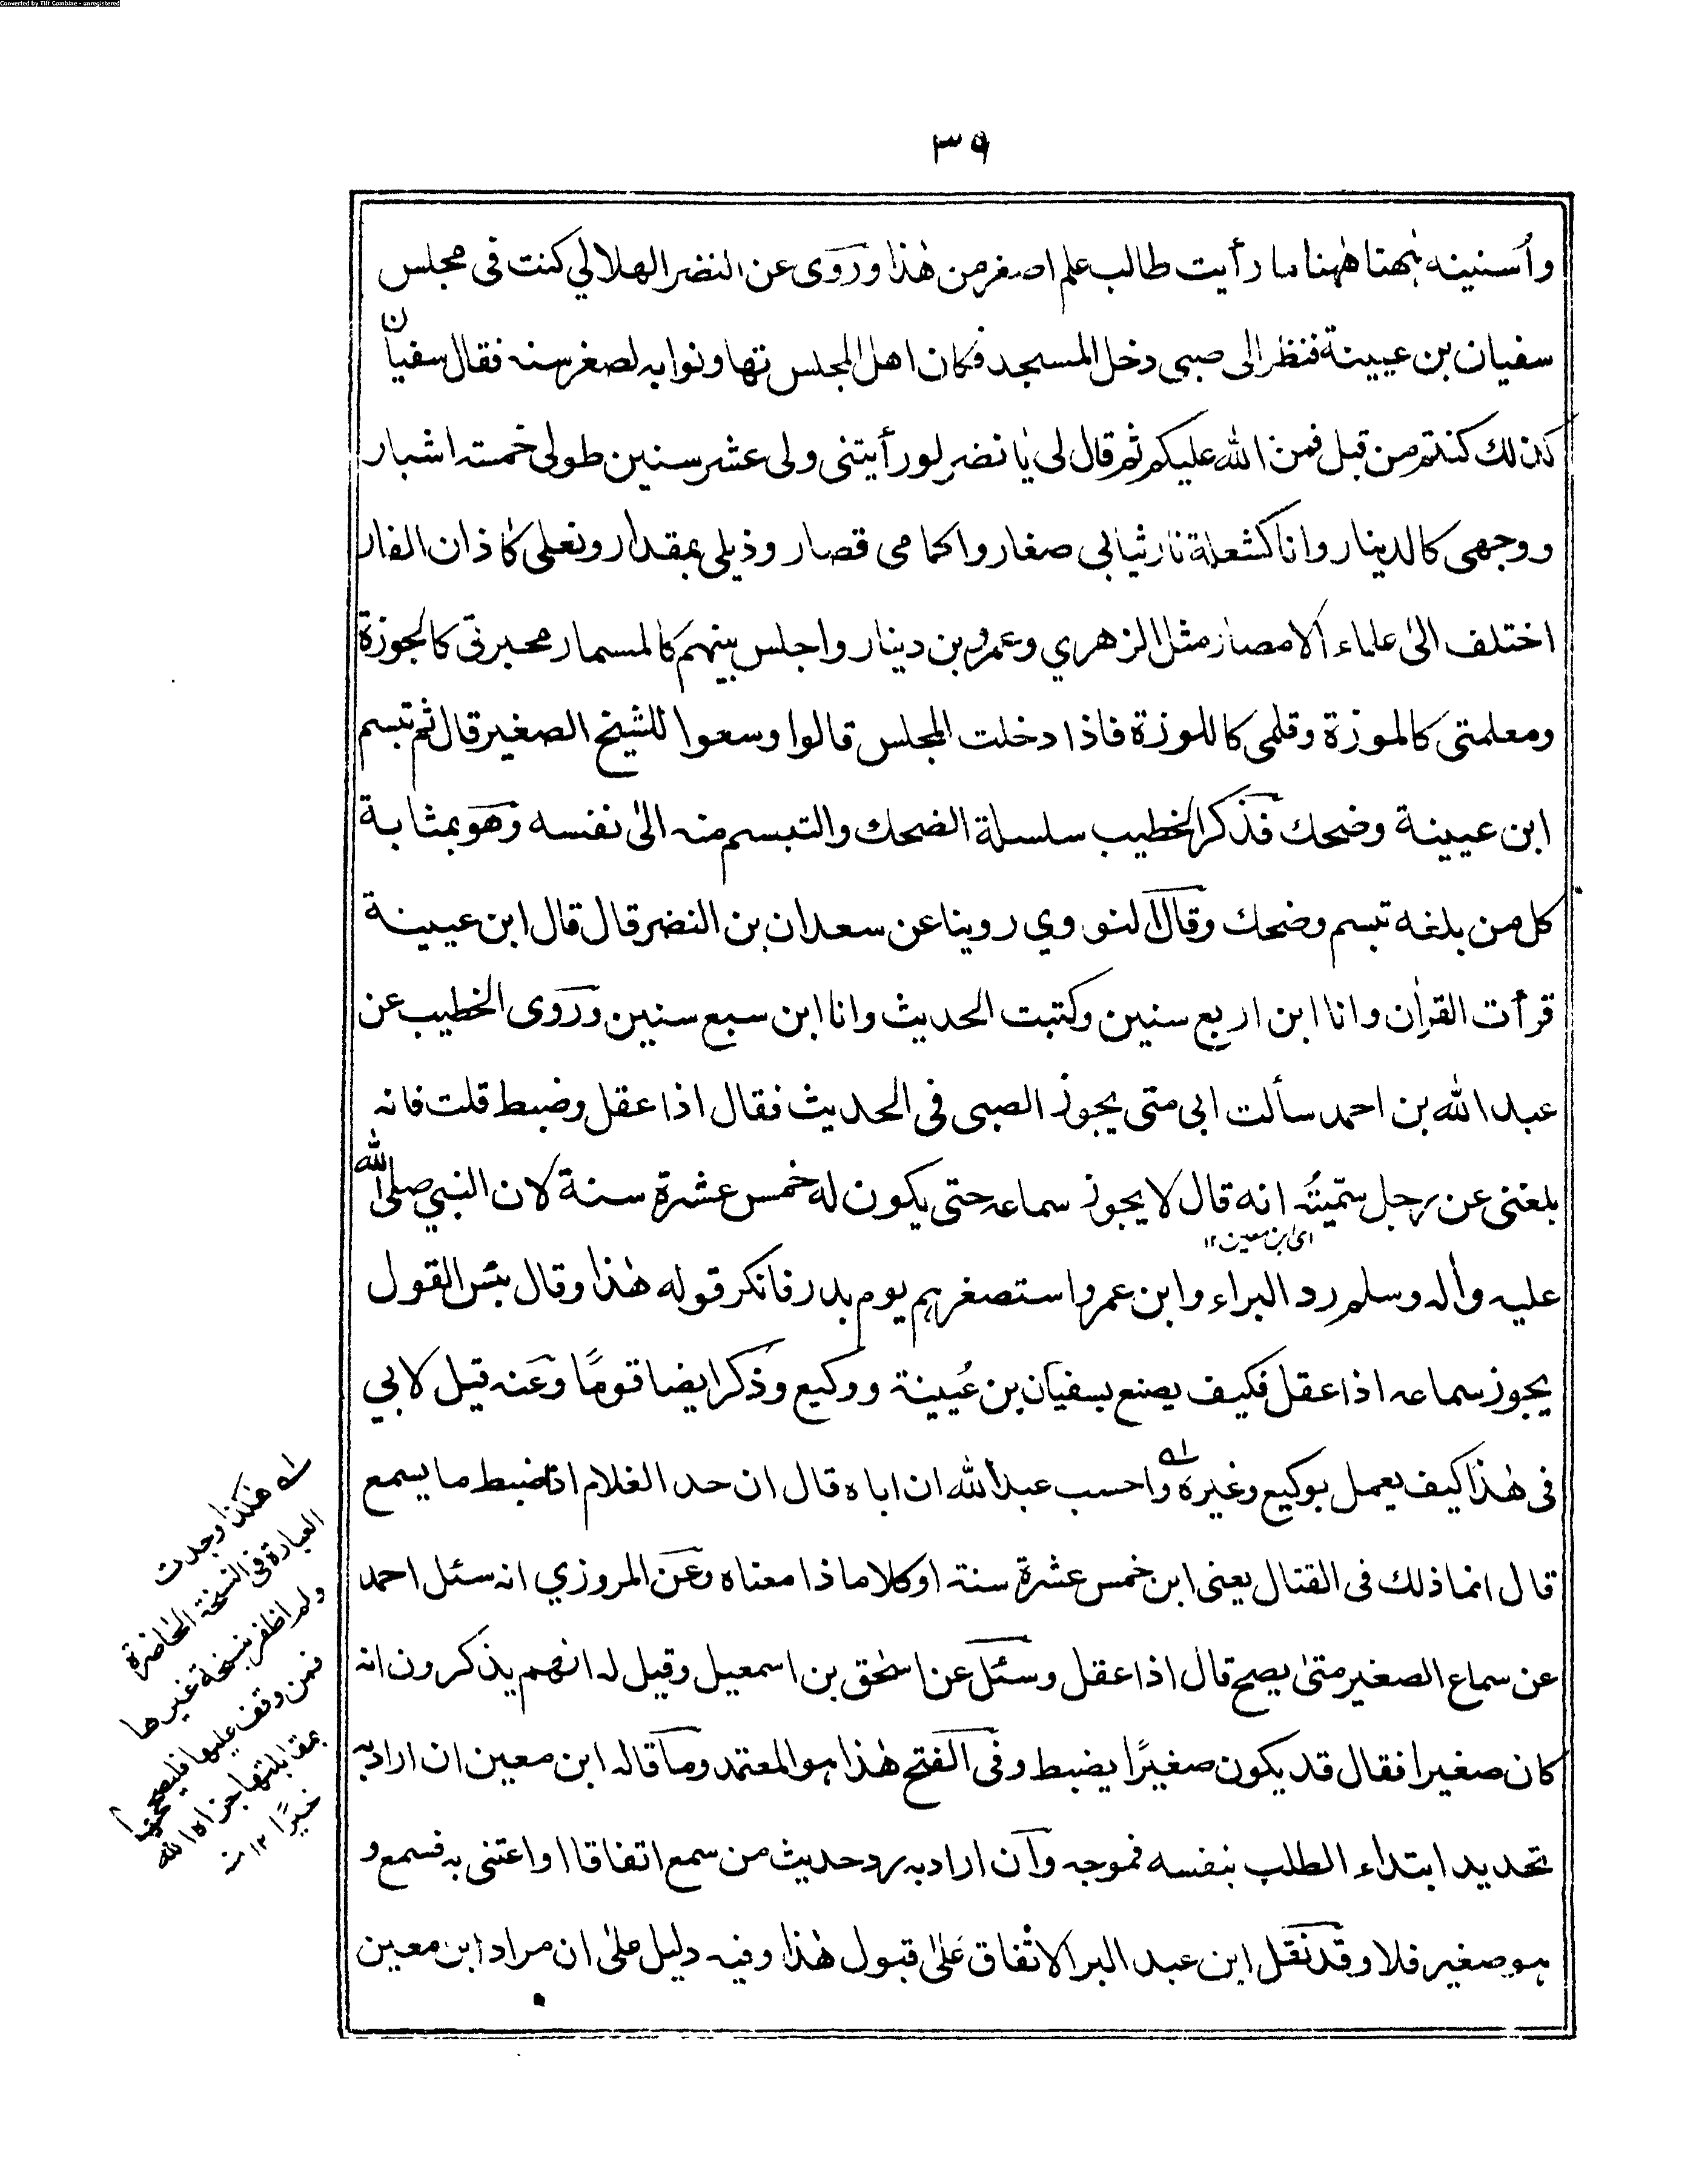 Converted by Tiff Combine - unregistered
٣٩
وأسنينه ههنا ما رأيت طالب علم اصغر من هٰذا وروى عن النضر الهلالي كنت فى مجلس
سفيان بن عيينة فنظر الى صبى دخل المسجد فكان اهل المجلس تهاونوا به لصغر سنه فقال سفيان
كذلك كنتم من قبل فمن الله عليكم ثم قال لى يا نضر لو رأيتنى ولى عشر سنين طولى خمسة اشبار
ووجهى كالدينار وانا كشعلة نار ثيابى صغار واكمامى قصار وذيلى بمقدار ونعلى كاذان الفار
اختلف الىٰ علماء الامصار مثل الزهري وعمرو بن دينار واجلس بينهم كالمسمار محبرتى كالجوزة
ومعلمتى كالموزة وقلمى كاللوزة فاذا دخلت المجلس قالوا وسعوا للشيخ الصغير قال ثم تبسم
ابن عيينة وضحك فذكر الخطيب سلسلة الضحك والتبسم منه الىٰ نفسه وهو بمثابة
كل من بلغه تبسم وضحك وقال النووي روينا عن سعدان بن النضر قال قال ابن عيينة
قرأت القراٰن وانا ابن اربع سنين وكتبت الحديث وانا ابن سبع سنين وروى الخطيب عن
عبد الله بن احمد سألت ابى متى يجوز الصبى فى الحديث فقال اذا عقل وضبط قلت فانه
بلغنى عن رجل سمّيتُه انه قال لا يجوز سماعه حتى يكون له خمس عشرة سنة لان النبي صلى الله
اى ابن معين ١٢
عليه واٰله وسلم رد البراء وابن عمر واستصغرهم يوم بدر فانكر قوله هٰذا وقال بئس القول
يجوز سماعه اذا عقل فكيف يصنع بسفيان بن عُيينة ووكيع وذكر ايضا قومًا وعنه قيل لابي
فى هٰذا كيف يعمل بوكيع وغيره واحسب عبد الله ان اباه قال ان حد الغلام اذا ضبط ما يسمع
قال انما ذلك فى القتال يعنى ابن خمس عشرة سنة او كلاما ذا معناه وعن المروزي انه سئل احمد
عن سماع الصغير متىٰ يصح قال اذا عقل وسئل عن اسحٰق بن اسمعيل وقيل له انهم يذكرون انه
كان صغيرا فقال قد يكون صغيرًا يضبط وفى الفتح هٰذا هو المعتمد وما قاله ابن معين ان اراد به
تحديد ابتداء الطلب بنفسه فموجه وان اراد به رد حديث من سمع اتفاقا او اعتنى به فسمع و
هو صغير فلا وقد نقل ابن عبد البر الاتفاق علىٰ قبول هٰذا وفيه دليل علىٰ ان مراد ابن معين
له هٰكذا وجدت
العبارة فى النسخة الحاضرة
ولم اظفر بنسخة غيرها
فمن وقف عليها فليصححها
بمقابلتها جزاه الله
خيرًا ١٢ منه